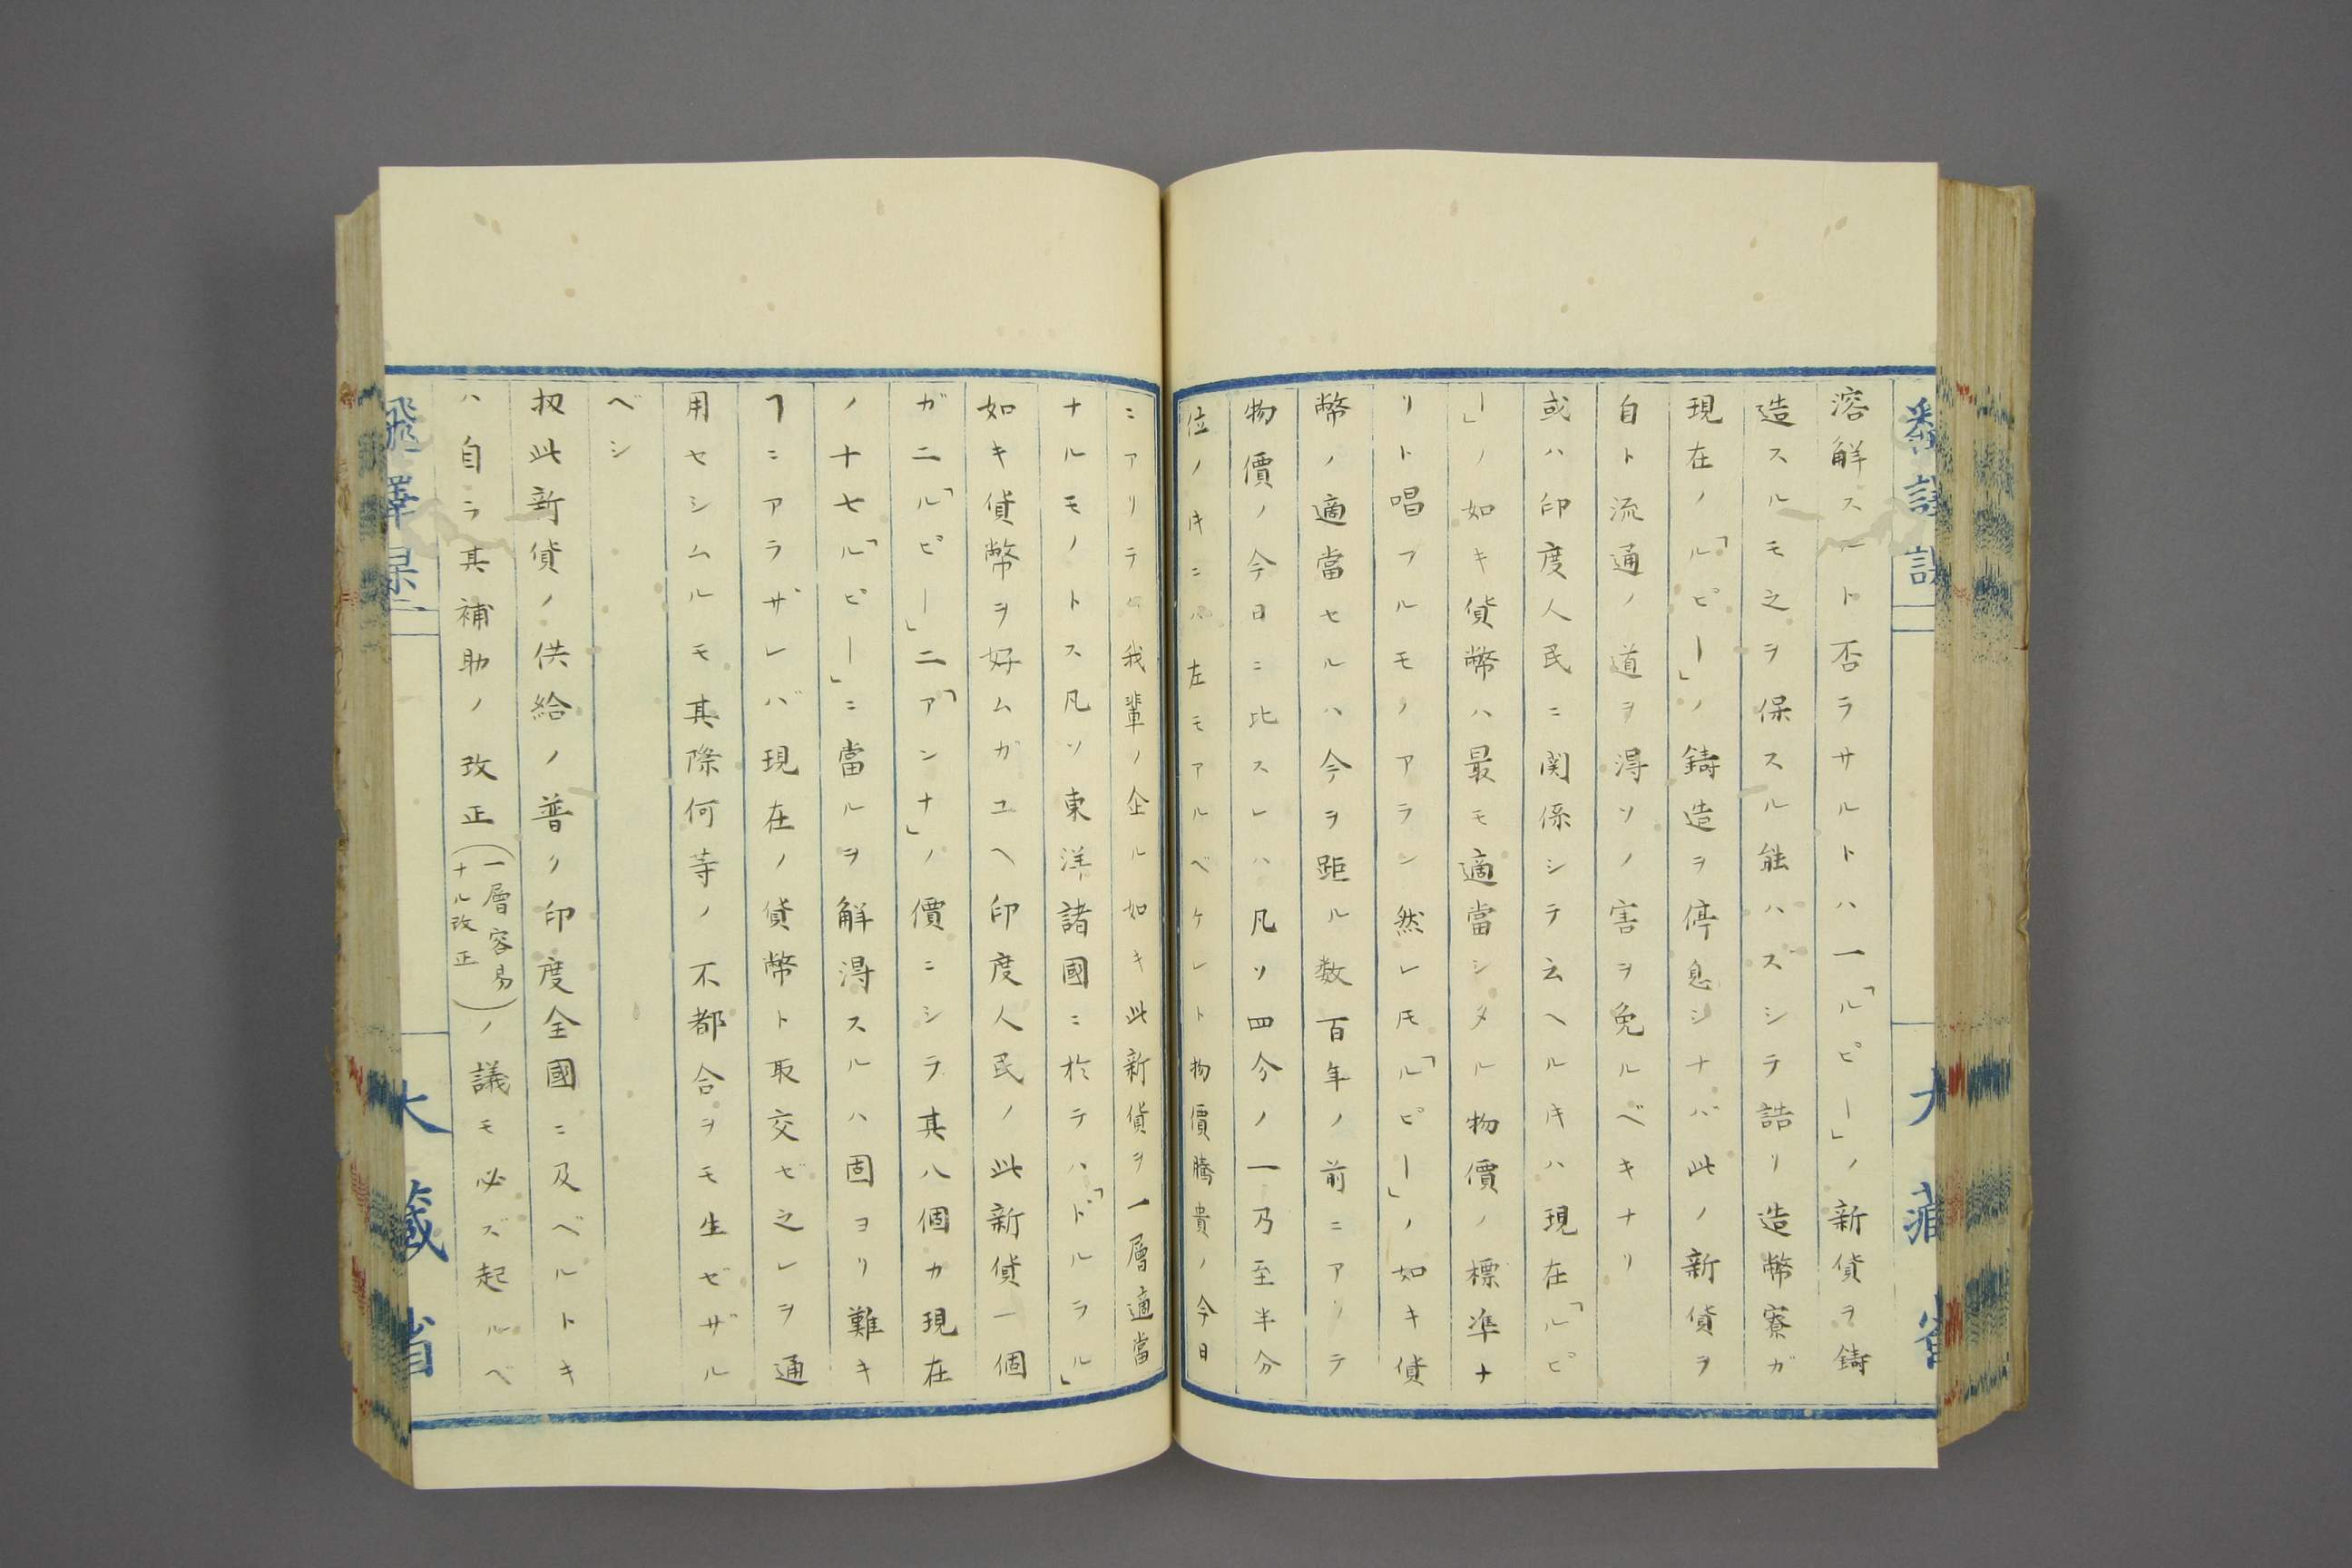 溶解スルト否ラサルトハ一「ルピー」ノ新貨ヲ鋳
造スルモ之ヲ保スル能ハズシテ詰リ造幣寮ガ
現在ノ「ルピー」ノ鋳造ヲ停息シナバ此ノ新貨ヲ
自ト流通ノ道ヲ得ソノ害ヲ免ルベキナリ
或ハ印度人民ニ関係シテ云ヘルキハ現在「ルピ
ー」ノ如キ貨幣ハ最モ適當シタル物價ノ標準ナ
リト唱フルモノアラン然レ𪜈「ルピー」ノ如キ貨
幣ノ適當セルハ今ヲ距ル数百年ノ前ニアリテ
物價ノ今日ニ比スレハ凡ソ四分ノ一乃至半分
位ノキニハ左モアルベケレト物價騰貴ノ今日
ニアリテハ我輩ノ企ル如キ此新貨ヲ一層適當
ナルモノトス凡ソ東洋諸國ニ於テハ「ドルラル」
如キ貨幣ヲ好ムガユヘ印度人民ノ此新貨一個
ガ二「ルピー」二「アンナ」ノ價ニシテ其八個カ現在
ノ十七「ルピー」ニ當ルヲ解得スルハ固ヨリ難キ
ヿニアラザレバ現在ノ貨幣ト取交ゼ之レヲ通
用セシムルモ其際何等ノ不都合ヲモ生ゼザル
ベシ
扨此新貨ノ供給ノ普ク印度全國ニ及ベルトキ
ハ自ラ其補助ノ改正（一層容易ナル改正）ノ議モ必ズ起ルベ
大藏省